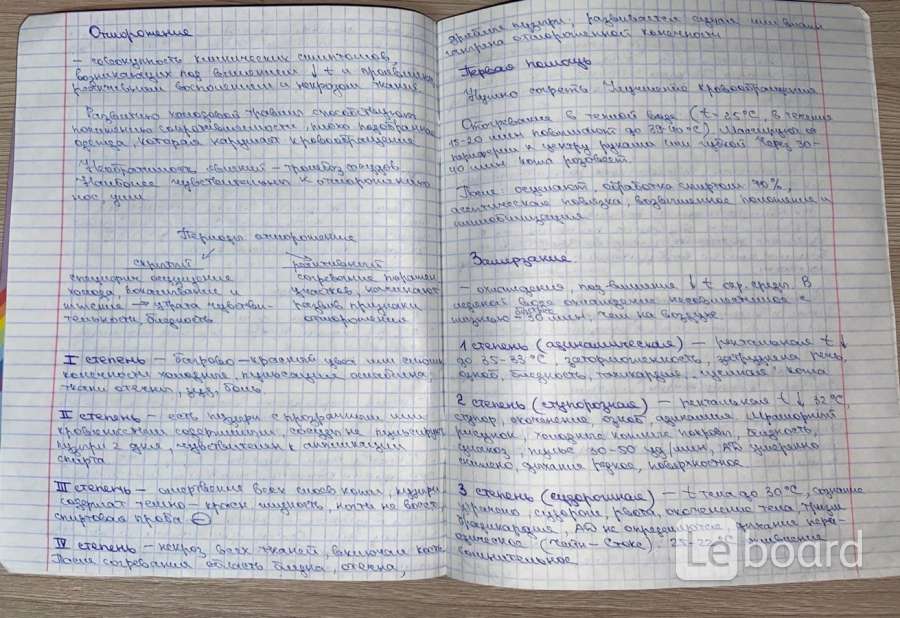 Отморожение
– совокупность клинических симптомов,
возникающих под влиянием ↓ t и проявления
реактивным воспалением и некрозом ткани.
Развитию холодовой травмы способствуют
понижению сопротивляемости, плохо подобранная
одежда, которая нарушает кровообращение
явлений – тромбоз сосудов.
Наиболее чувствительны к отморожению
нос, уши
Периоды отморожения
скрытый
специфич. ощущение
холода, покалывание и
жжение → утрата чувстви-
тельности, бледность
реактивный
согревание поражен.
участков, начинают
развив. признаки
отморожения
I степень – багрово-красный цвет или синюш.
конечности холодные, пульсация ослаблена,
ткани отечны, зуд, боль
II степень – есть пузыри с прозрачным или
кровянистым содержимым, сосуды не пульсируют,
пузыри 2 дня, чувствителен к аппликации
спирта
III степень – омертвение всех слоев кожи, пузыри
содержат темно-красн. жидкость, ногти не восст.,
спиртовая проба ⊖
IV степень – некроз всех тканей, включая кости
После согревания область бледна, отечна,
дряблые пузыри, развивается сухая или влажн.
гангрена отмороженной конечности
Первая помощь
Нужно согреть. Улучшение кровообращения
Отогревание в теплой воде (t - 25°C, в течение
15-20 мин повышают до 39-40°C) Массируют от
периферии к центру руками или губкой Через 30-
40 мин кожа розовеет.
После: осушают, обработка спиртом 70%,
асептическая повязка, возвышенное положение и
иммобилизация
Замерзание
– охлаждения, под влияние ↓ t окр. среды. В
ледяной воде охлаждение
быстрее
30 мин, чем на воздухе
1 степень (адинамическая) – ректальная t ↓
до 35-33°C, заторможенность, затруднена речь,
озноб, бледность, тахикардия, кожа
2 степень (ступорозная) – ректальная t ↓ 32°C,
ступор, окоченение, озноб, адинамия. Мраморный
рисунок, холодные кожные покровы, бледность,
цианоз, пульс 30-50 уд/мин, АД умеренно
снижено, дыхание редкое, поверхностное
3 степень (судорожная) – t тела до 30°C, сознание
утрачено, судороги, рвота, окоченение тела, тризм
брадикардия, АД не определяется, дыхание пери-
одическое (Чейн-Стокс). 25-22°C оживление
сомнительное
Le board